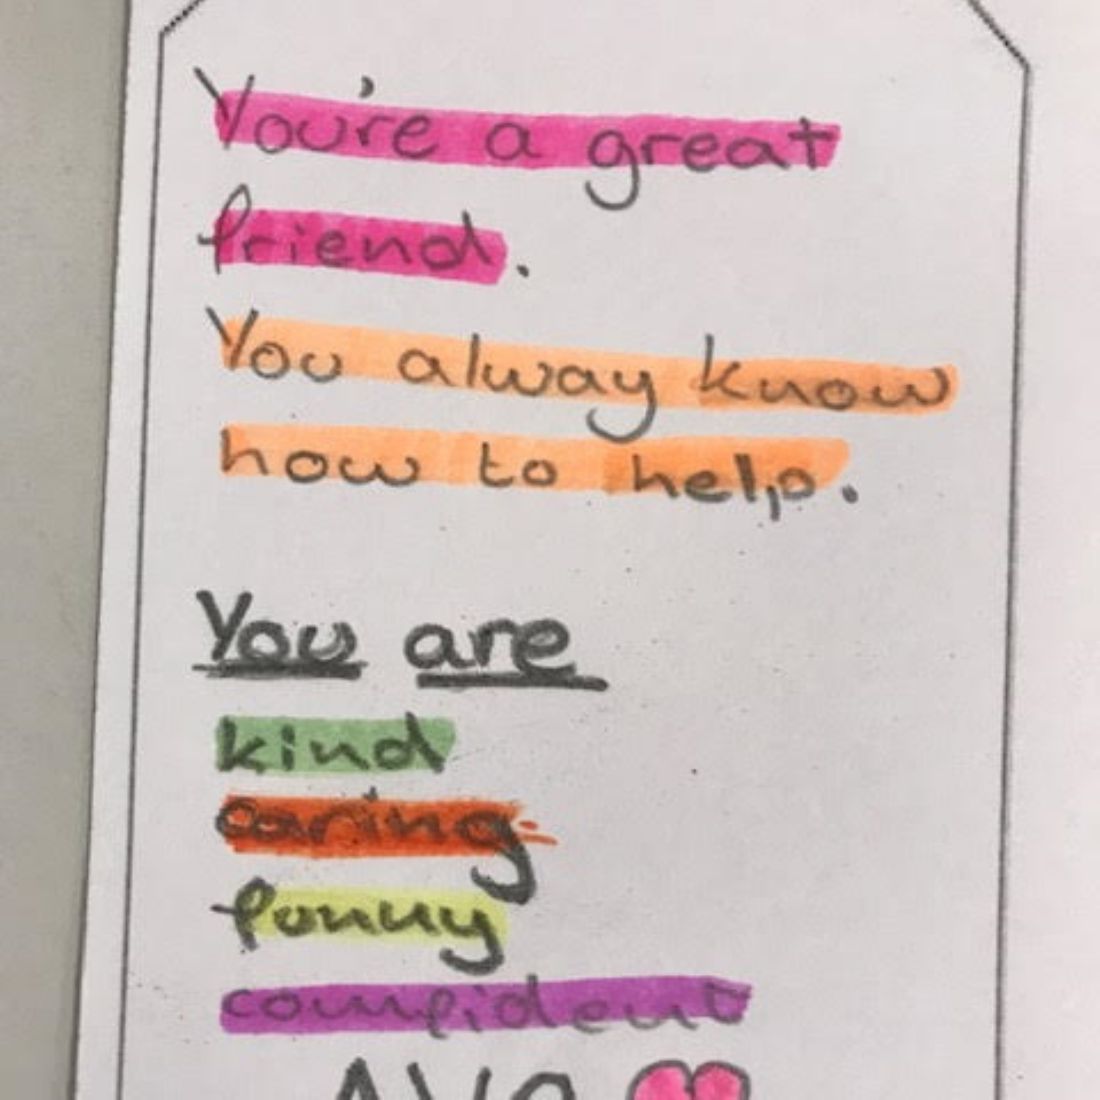 You're a great
friend.
You alway know
how to help.
You are
kind
caring
funny
confident